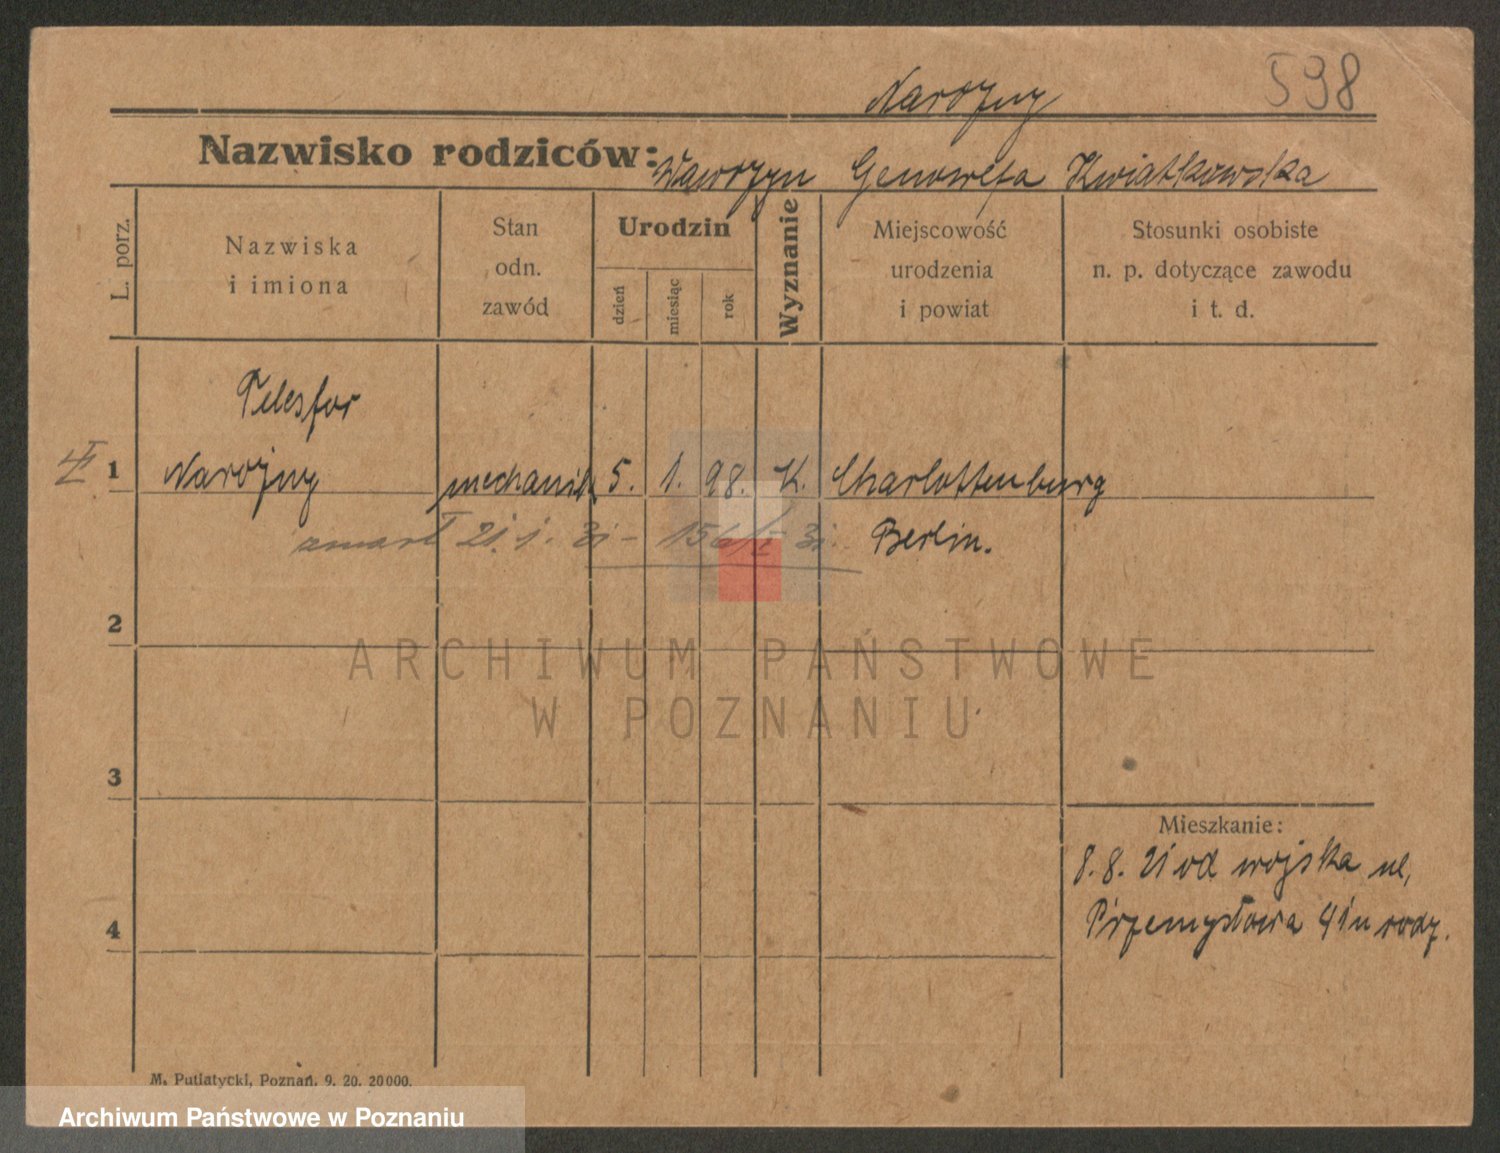 598
Narożny
Nazwisko rodziców: Wawrzyn Genowefa Kwiatkowska
L. porz.
Nazwiska i imiona
Stan odn. zawód
Urodzin
dzień
miesiąc
rok
Wyznanie
Miejscowość urodzenia i powiat
Stosunki osobiste n. p. dotyczące zawodu i t. d.
Telesfor
1 Narożny mechanik 5. 1. 98. K. Charlottenburg
zmarł 21.1.31 - 156/I 31. Berlin.
2
ARCHIWUM PAŃSTWOWE
W POZNANIU
3
Mieszkanie:
8.8.21 od wojska ul.
4 Przemysłowa 41 u rodz.
M. Putiatycki, Poznań. 9. 20. 20000.
Archiwum Państwowe w Poznaniu